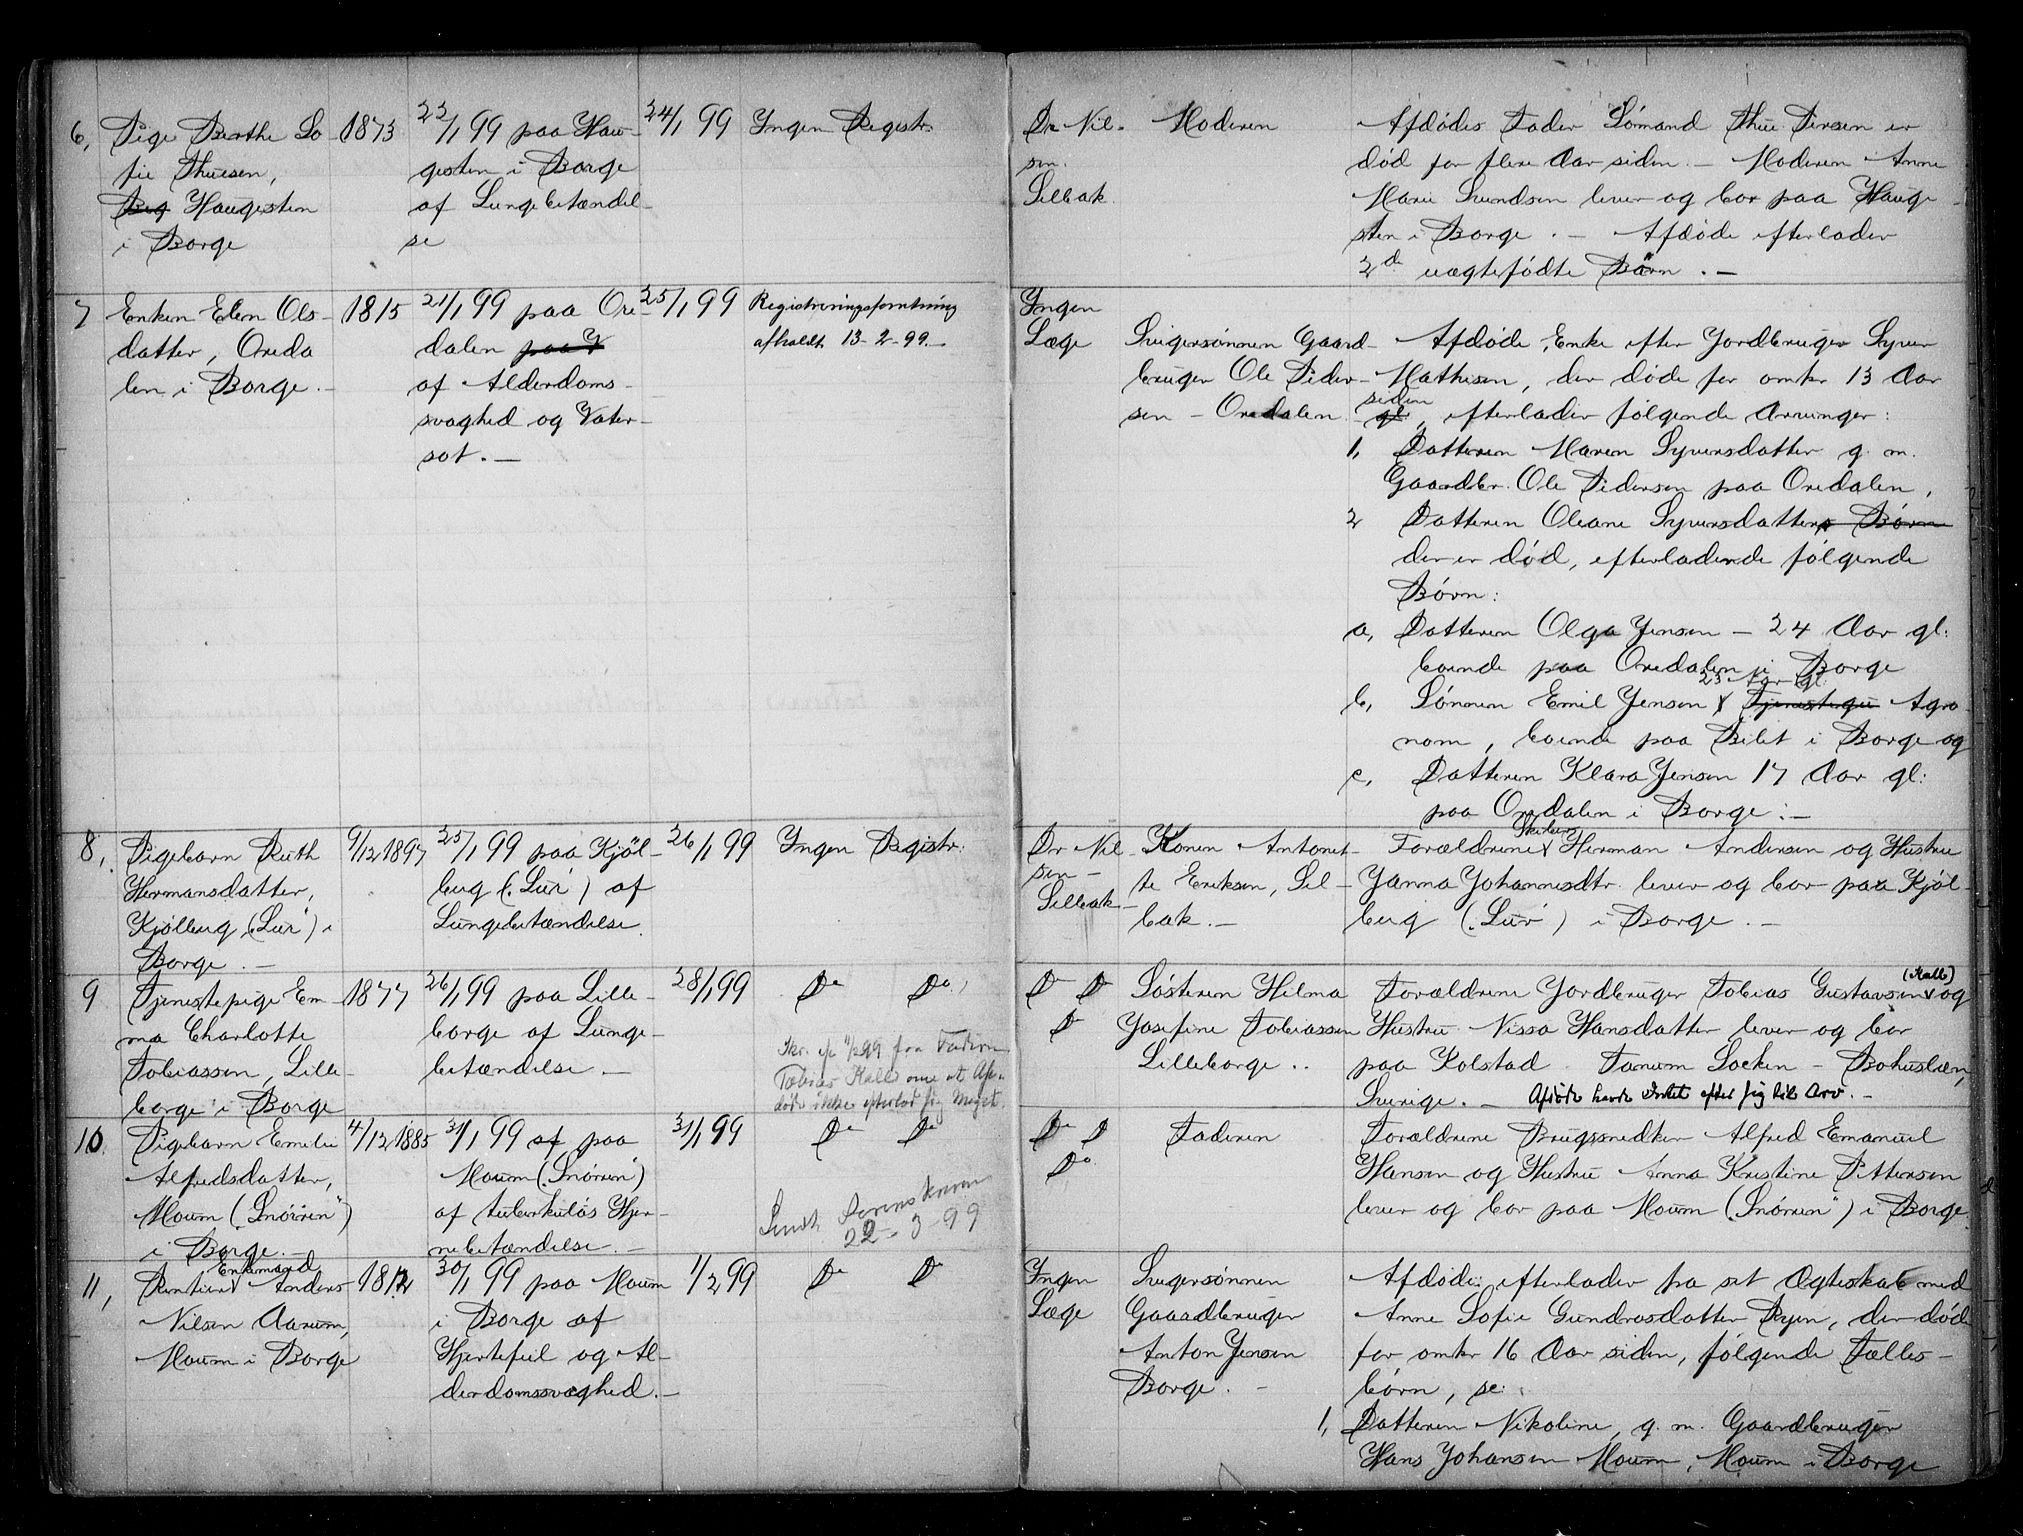 6, Pige Berthe So-
fie Thuesen,
Beg Haugesten
i Borge
1873
22/1 99 paa Hau-
gesten i Borge
af Lungebetændel-
se
24/1 99
Ingen Registr.
Dr Nil-
sen.
Selbak.
Moderen
Afdødes Fader Sømand Thue Persen er
død for flere Aar siden. — Moderen Anne
Marie Svendsen lever og bor paa Hauge-
sten i Borge. — Afdøde efterlader
2de uægtefødte Børn. —
7 Enken Elen Ols-
datter, Oreda
len i Borge. —
1815
21/1 99 paa Ore-
dalen paa V
af Alderdoms-
svaghed og Vater-
sot. —
25/1 99
Registreringsforretning
afholdt 13-2-99. —
Ingen
Læge
Svigersønnen Gaard-
bruger Ole Peder-
sen - Oredalen
Afdøde, Enke efter Jordbruger Syver
Mathisen, der døde for omkr 13 Aar
siden
gl., efterlader følgende Arvinger:
1, Datteren Maren Syversdatter g. m.
Gaardbr. Ole Pedersen paa Oredalen,
2 Datteren Oleane Syversdatters Børn
der er død, efterladende følgende
Børn:
a, Datteren Olga Jensen — 24 Aar gl:
boende paa Oredalen i Borge
23 Aar gl:
b, Sønnen Emil Jensen, Tjenestegut Agro-
nom, boende paa Bilet i Borge og
c, Datteren Klara Jensen 17 Aar gl:
paa Oredalen i Borge: —
8, Pigebarn Ruth
Hermansdatter,
Kjølberg, (Lur) i
Borge. —
9/12 1897
25/1 99 paa Kjøl-
berg (Lur) af
Lungebetændelse.
26/1 99
Ingen Registr:
Dr Nil-
sen -
Selbak -
Konen Antonet-
te Eriksen, Sel-
bak. —
Forældrene Herman Andersen og Hustru
Janna Johannesdtr. lever og bor paa Kjøl-
berg (Lur) i Borge. —
9 Tjenestepige Em-
ma Charlotte
Tobiassen, Lille-
borge i Borge
1877
26/1 99 paa Lille-
borge af Lunge-
betændelse. —
28/1 99
Do Do,
Skr. af 11/2 99 fra Faderen
Tobias Kalle om at Af-
døde ikke efterlod sig Noget.
Do Do
Do
Søsteren Hilma
Josefine Tobiassen
Lilleborge..
(Kalle)
Forældrene Jordbruger Tobias Gustavsen og
Hustru Nissa Hansdatter lever og bor
paa Kolstad Tanum Socken - Bohuslæn,
Sverige. — Afdøde havde Intet efter sig til Arv. —
10. Pigebarn Emelie
Alfredsdatter,
Moum ("Snören")
i Borge. —
4/12 1885
31/1 99 af paa
Moum ("Snören")
af tuberkuløs Hjer-
nebetændelse. —
31/1 99
Do Do
Sendt Sorenskriveren
22-3-99
Do D
Do
Faderen
Forældrene Brugssnedker Alfred Emanuel
Hansen og Hustru Anna Kristine Pettersen
lever og bor paa Moum ("Snören") i Borge.
Enkemand
11, Rentier Anders
Nilsen Aarum,
Moum i Borge
1812
30/1 99 paa Moum
i Borge af
Hjertefeil og Al-
derdomssvaghed. —
1/2 99
Do Do
Ingen
Læge
Svigersønnen
Gaardbruger
Anton Jensen
Borge. —
Afdøde: efterlader fra sit Ægteskab med
Anne Sofie Gundrosdatter Ryen, der døde
for omkr 16 Aar siden, følgende Fælles-
børn, se:
1, Datteren Nikoline, g. m. Gaardbruger
Hans Johansen Moum, Moum i Borge